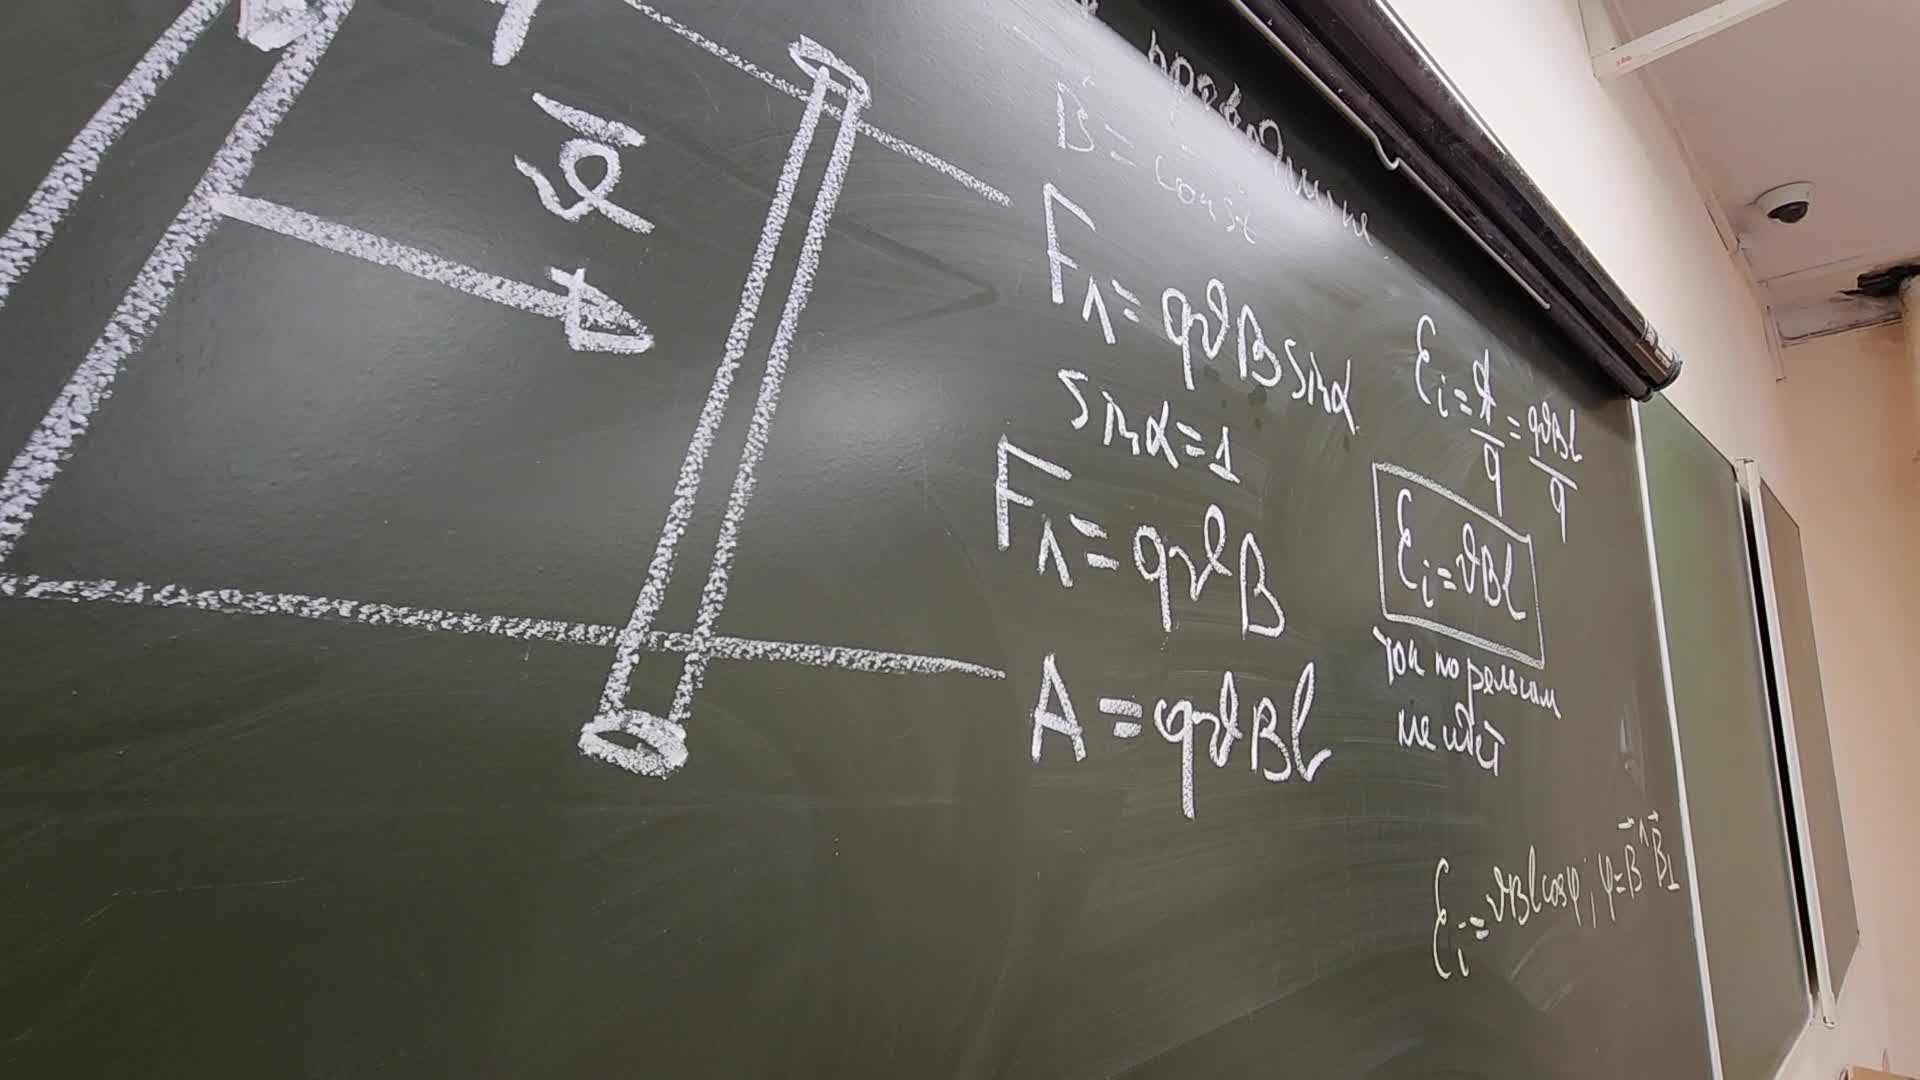 проводнике
B = const
F_л = qϑB sinα
sinα = 1
F_л = qϑB
A = qϑBl
ϑ⃗
ℰi = A/q = qϑBl/q
ℰi = ϑBl
ток по рельсам
не идёт
ℰi = ϑBl cosφ; φ = B⃗^B⃗⊥